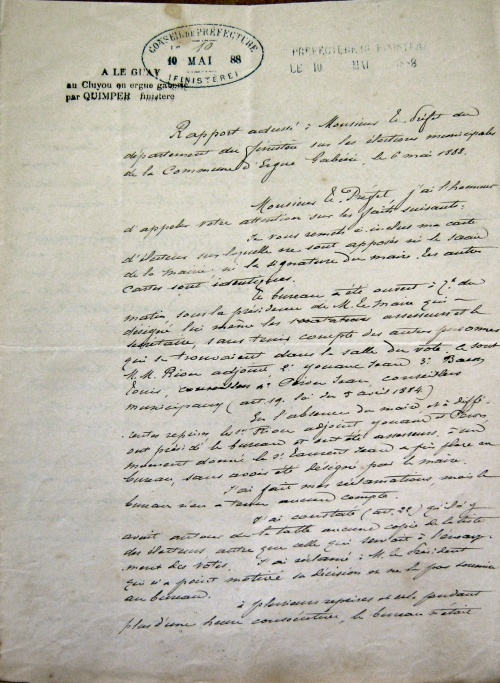 CONSEIL DE PRÉFECTURE
10 MAI 88
(FINISTÈRE)
PRÉFECTURE DU FINISTÈRE
LE 10 MAI 1888
A LE GUAY
au Cluyou en ergue gaberic
par QUIMPER finistere
Rapport adressé à Monsieur le Préfet du
département du finistère sur les élections municipales
de la Commune d'Ergué Gabéric, le 6 mai 1888.
Monsieur le Préfet, j'ai l'honneur
d'appeler votre attention sur les faits suivants:
Je vous remets ci-inclus ma carte
d'électeur sur laquelle ne sont apposés ni le sceau
de la mairie, ni la signature du maire. Les autres
cartes sont identiques.
Le bureau a été ouvert à 7h du
matin, sous la présidence de M. le Maire qui a
désigné lui même les assesseurs et le
secrétaire, sans tenir compte des autres personnes
qui se trouvaient dans la salle du vote. Ce sont
M.M. Riou adjoint, 2° Jean 3°
Louis, 4° Jean, conseillers
municipaux (art. 19. loi du 5 avril 1884)
En l'absence du maire et à diffé-
rentes reprises le Sr. Riou adjoint, et
ont présidé le bureau et ont été assesseurs, à un
moment donné le Sr. Laurent Jean a pris place au
bureau, sans avoir été désigné par le maire.
J'ai fait mes réclamations, mais le
bureau n'en a tenu aucun compte.
J'ai constaté (art. 22) qu'il n'y
avait autour de la table aucune copie de la liste
des électeurs autre que celle qui servait à l'émarge-
ment des votes. J'ai réclamé à M. le Président
qui n'a point motivé sa décision et ne l'a pas soumise
au bureau.
à plusieurs reprises et cela pendant
plus d'une heure consécutive, le bureau n'était